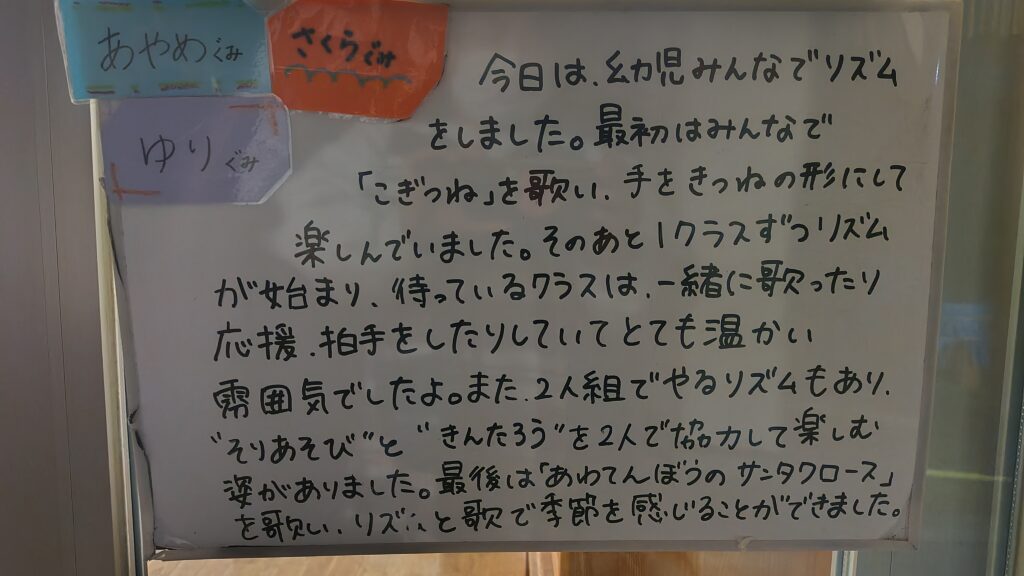 あやめぐみ
さくらぐみ
ゆりぐみ
今日は、幼児みんなでリズム
をしました。最初はみんなで
「こぎつね」を歌い、手をきつねの形にして
楽しんでいました。そのあと1クラスずつリズム
が始まり、待っているクラスは、一緒に歌ったり
応援、拍手をしたりしていてとても温かい
雰囲気でしたよ。また、2人組でやるリズムもあり、
"そりあそび"と "きんたろう"を2人で協力して楽しむ
姿がありました。最後は「あわてんぼうのサンタクロース」
を歌い、リズムと歌で季節を感じることができました。